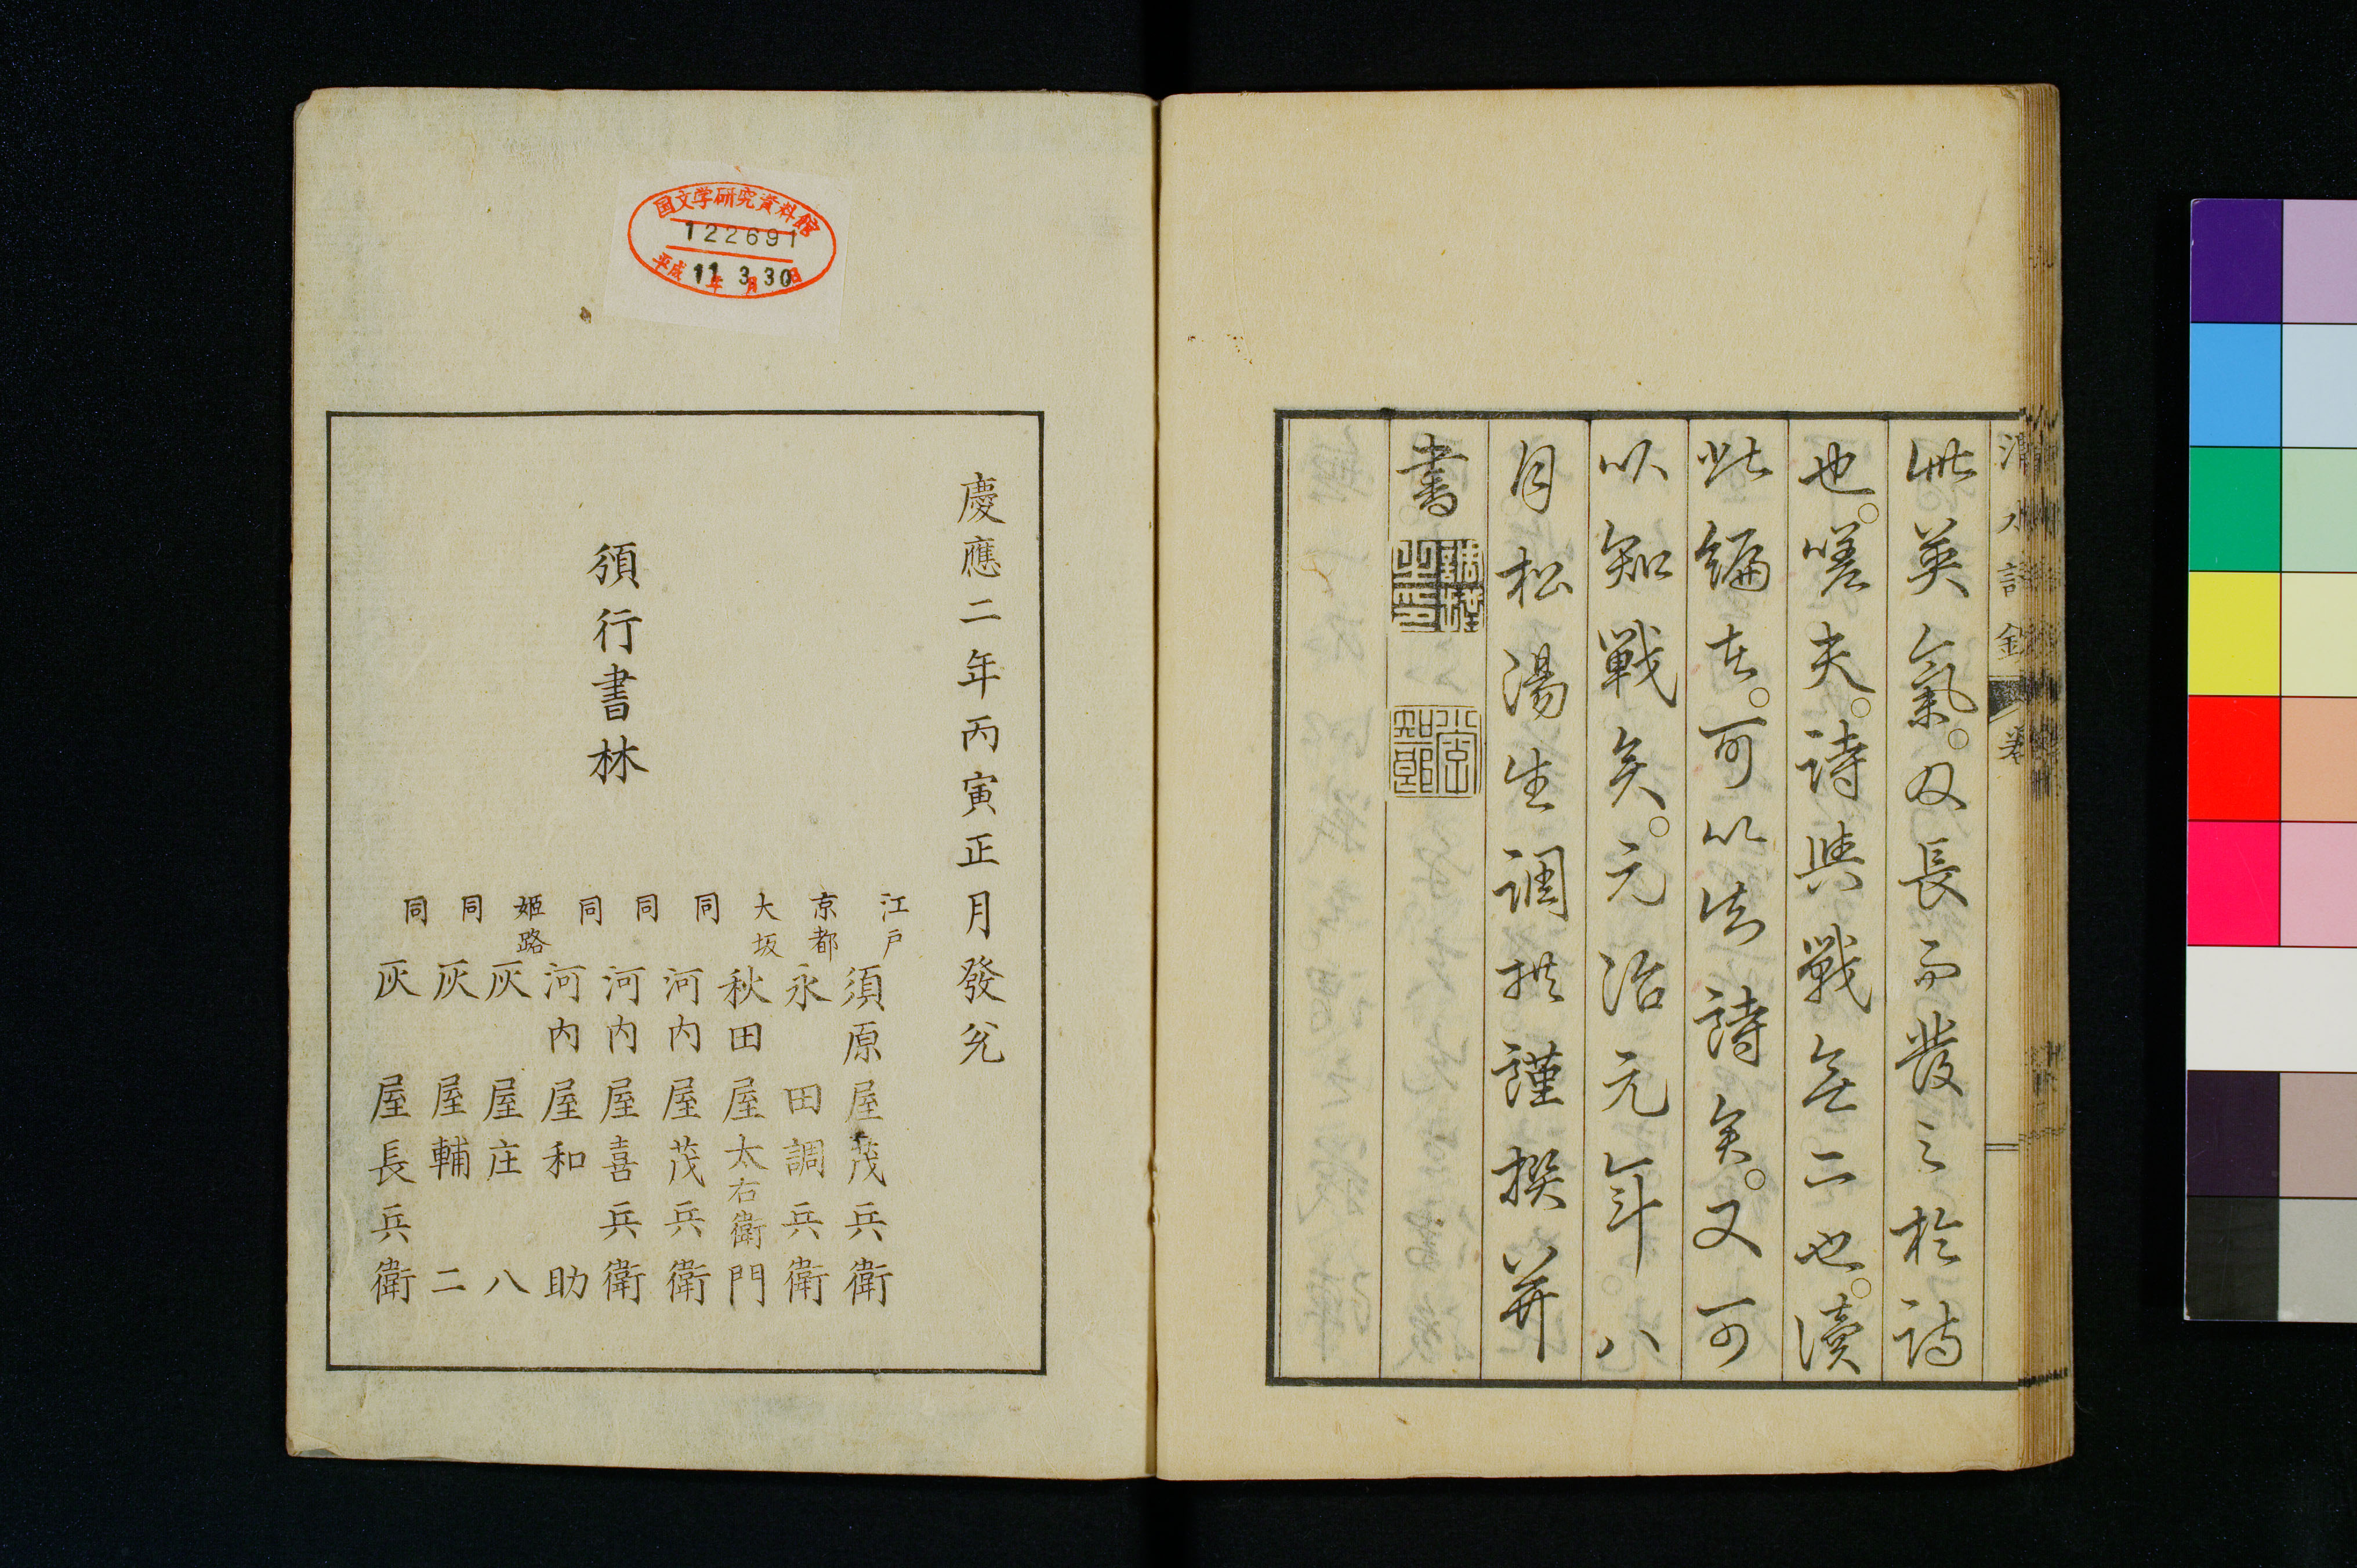 此英氣。及長而發之於詩
也。嗟夫。詩與戰無二也。讀
此編者。可以知詩矣。又可
以知戰矣。元治元年。八
月松湯生調拱謹撰并
書
慶應二年丙寅正月發兌
頒行書林
江戸 須原屋茂兵衛
京都 永田調兵衛
大坂 秋田屋太右衛門
同 河内屋茂兵衛
同 河内屋喜兵衛
同 河内屋和助
姬路 灰屋庄八
同 灰屋輔二
同 灰屋長兵衛
国文学研究資料館
122691
平成11年3月30日